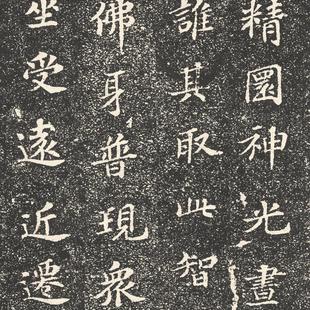 精圓神光晝
誰其取此智
佛身普現衆
坐受遠近遷